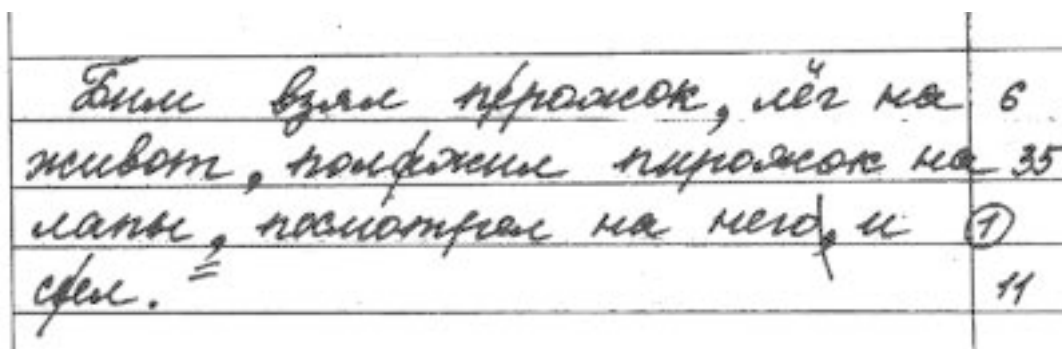 Бим взял перожок, лёг на 6
живот, положил пирожок на 35
лапы, посмотрел на него, и 1
сьел. 11